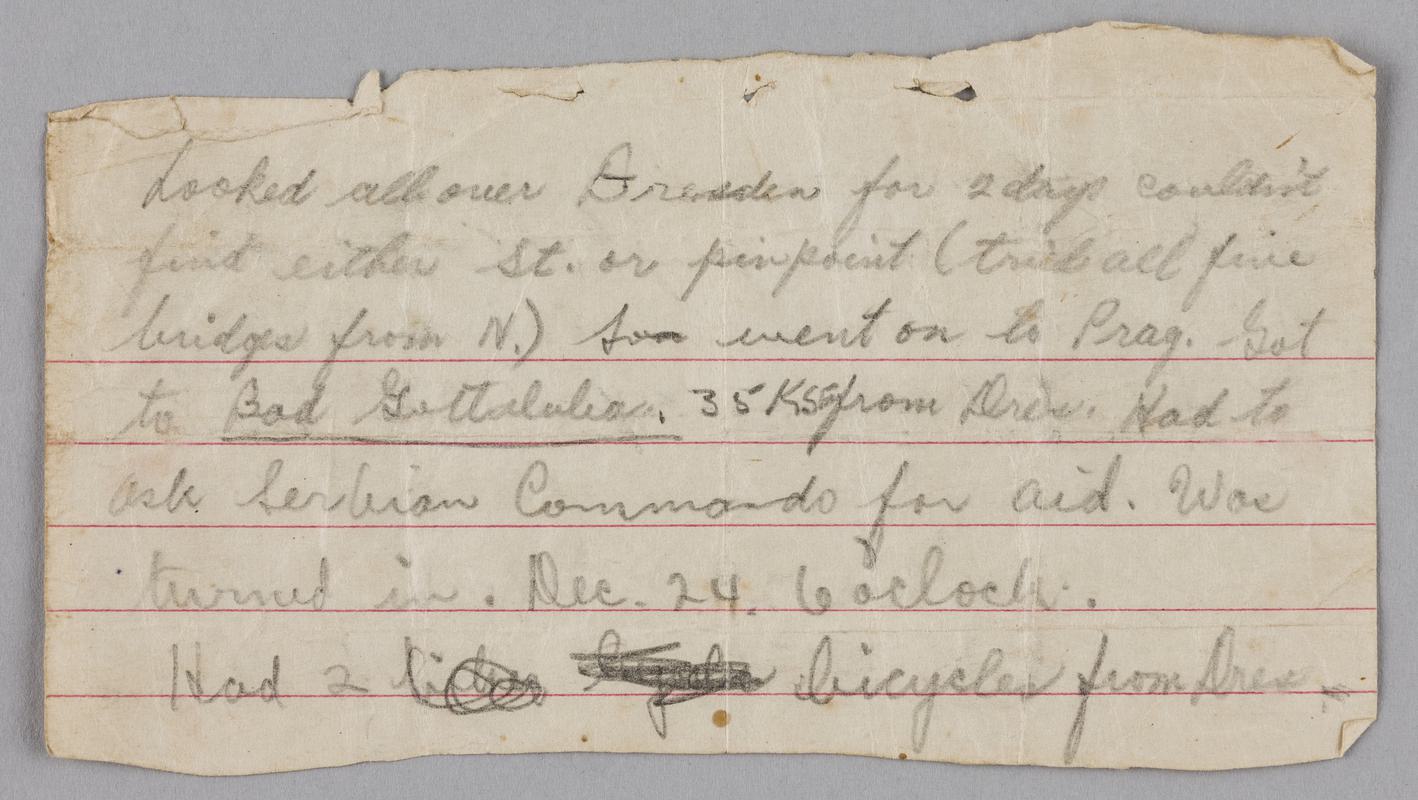 Looked all over Dresden for 2 days couldn't
find either St. or pinpoint (tried all five
bridges from N.) so went on to Prag. Got
to Bad Gottaluba. 35 Ks from Dres. Had to
ask Serbian Commando for aid. Was
turned in. Dec. 24. 6 o'clock.
Had 2 bicycles from Dres